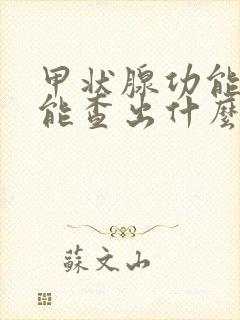 甲状腺功能
能查出什麽
蘇文山